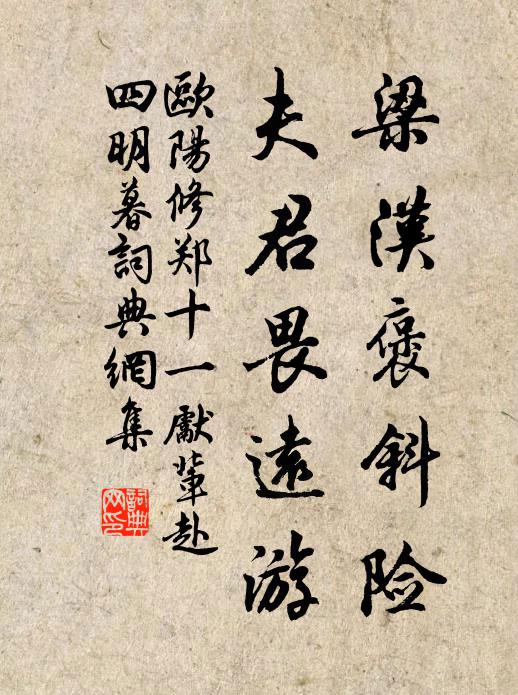 梁漢褒斜险
夫君畏遠游
歐陽修郑十一獻輩赴
四明暮詞典網集
詞典网印